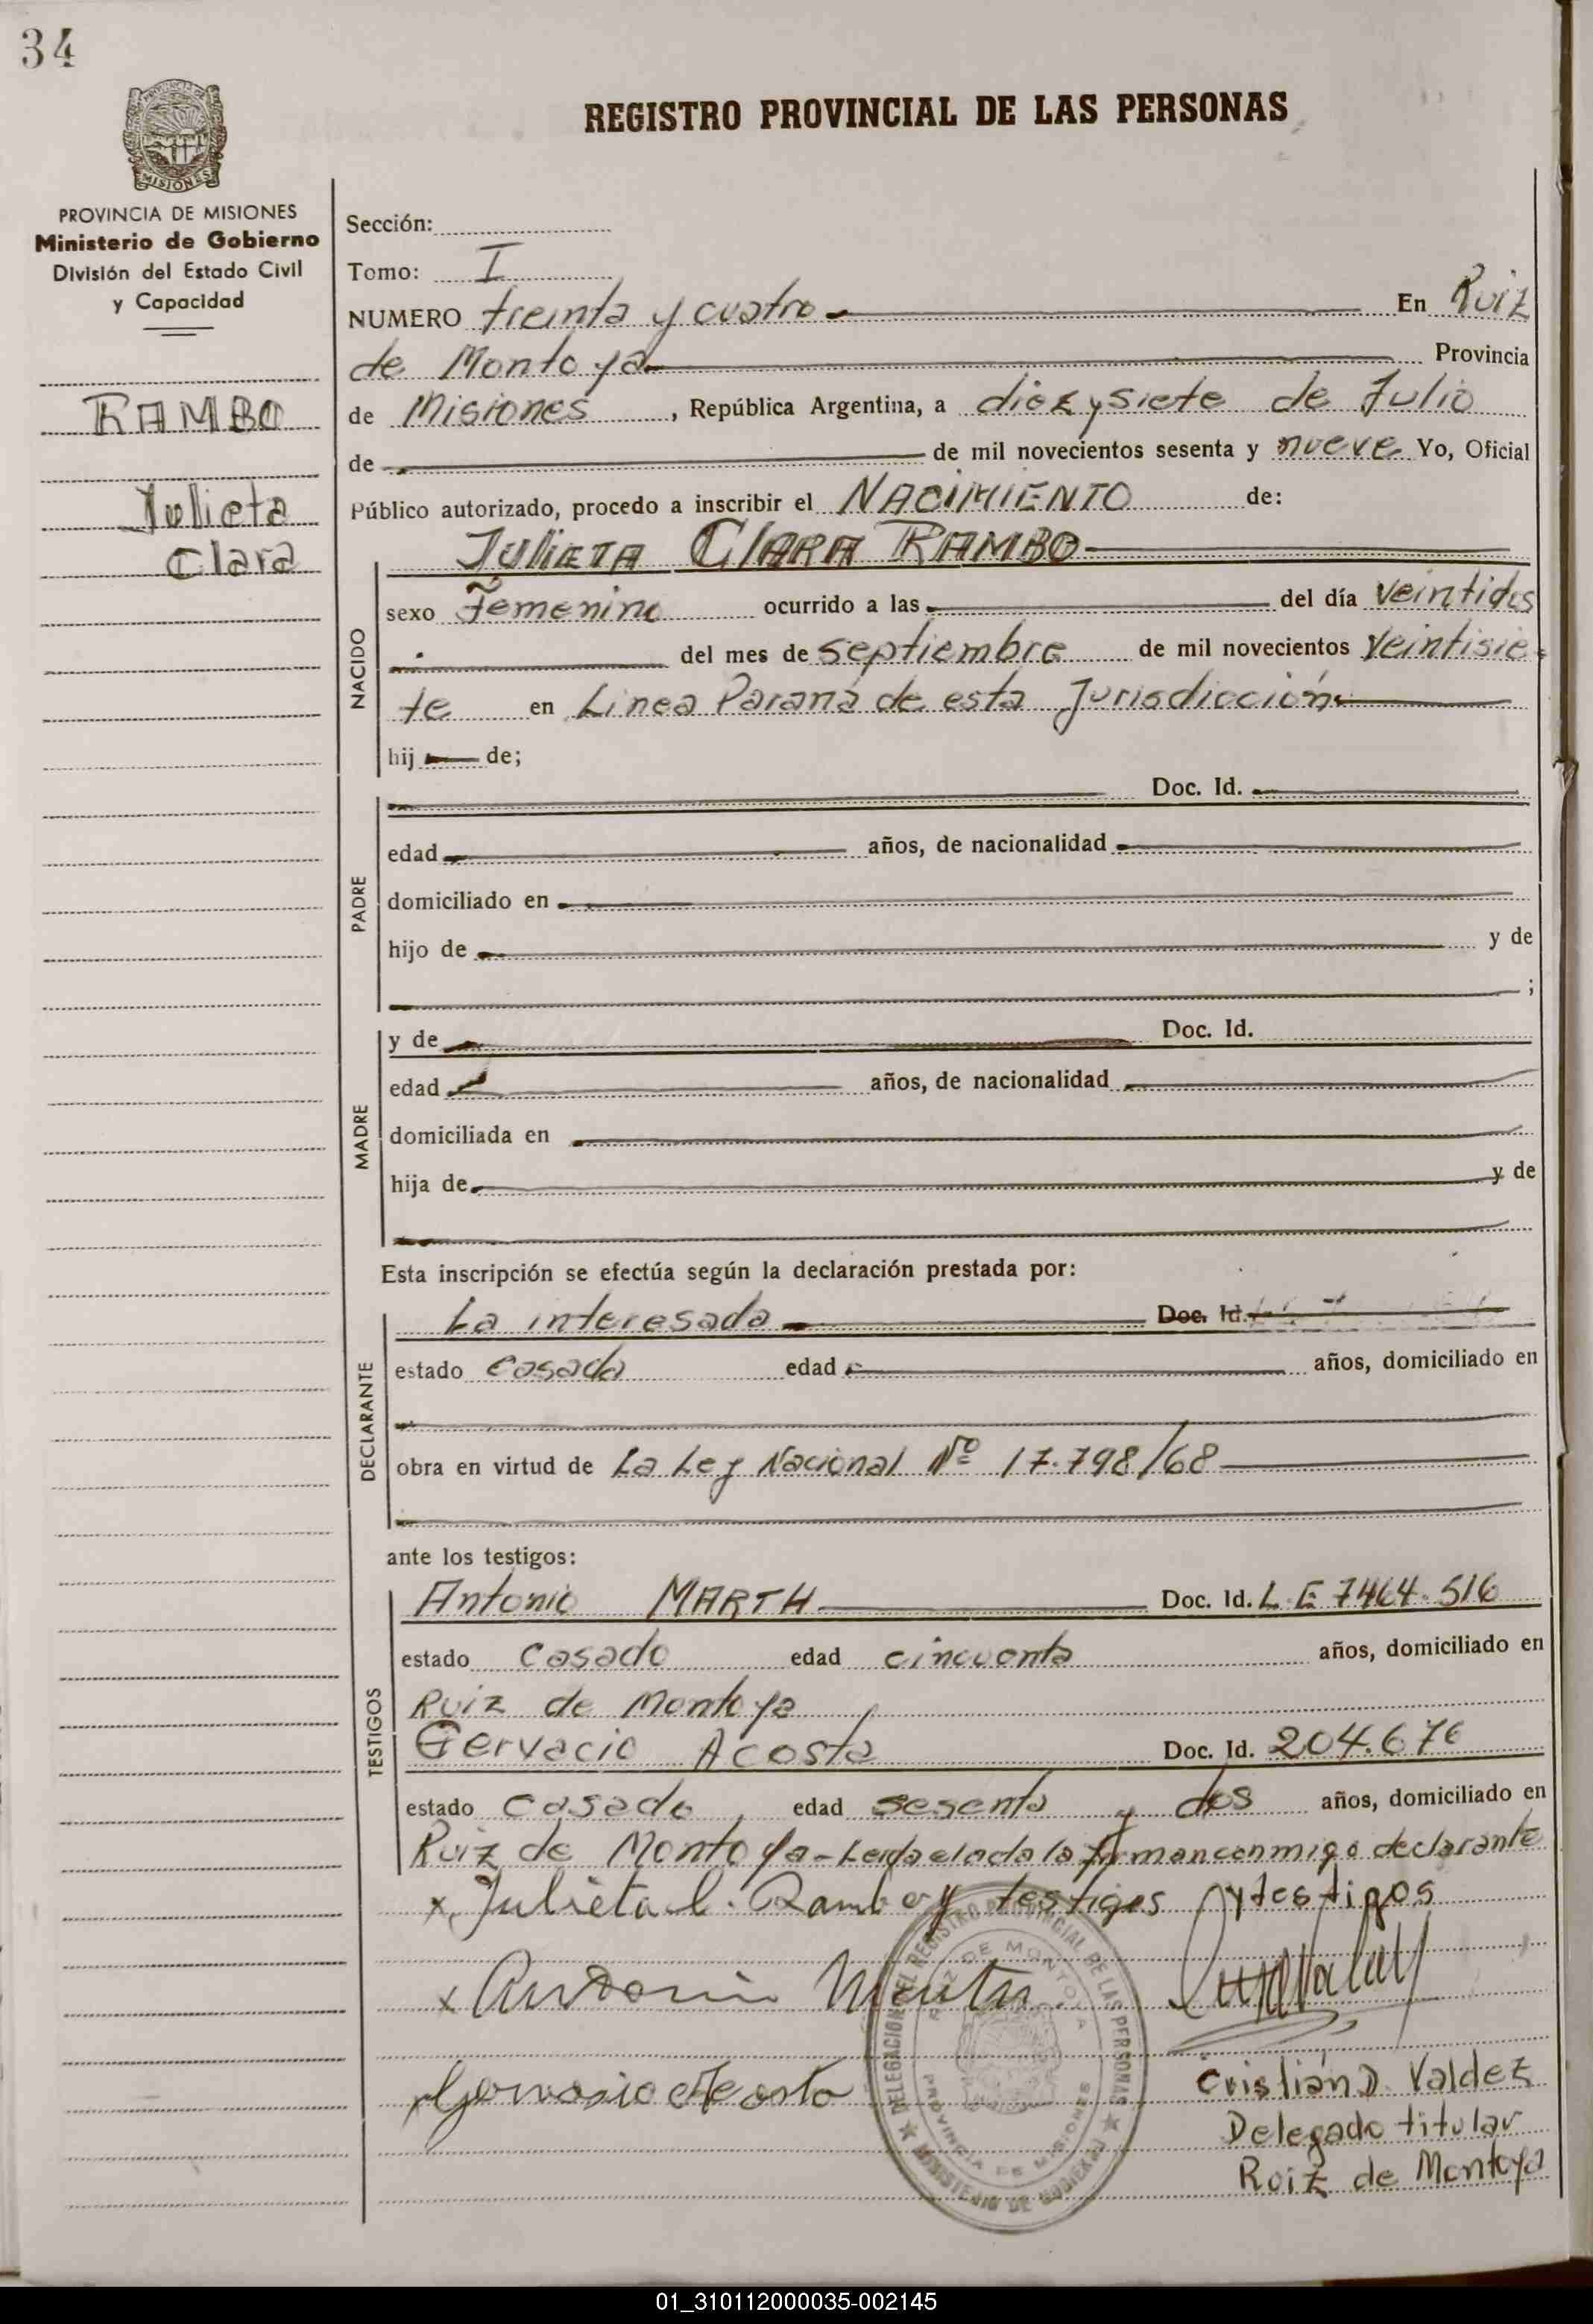 34
REGISTRO PROVINCIAL DE LAS PERSONAS
MISIONES
PROVINCIA DE MISIONES
Ministerio de Gobierno
División del Estado Civil
y Capacidad
RAMBO
Julieta
Clara
Sección:
Tomo: I
NUMERO treinta y cuatro En Ruiz
de Montoya Provincia
de Misiones, República Argentina, a diez y siete de Julio
de de mil novecientos sesenta y nueve Yo, Oficial
Público autorizado, procedo a inscribir el NACIMIENTO de:
JULIETA CLARA RAMBO
NACIDO
sexo Femenino ocurrido a las del día veintidos
del mes de septiembre de mil novecientos veintisie
te en Linea Paraná de esta Jurisdicción
hij de;
PADRE
Doc. Id.
edad años, de nacionalidad
domiciliado en
hijo de y de
;
MADRE
y de Doc. Id.
edad años, de nacionalidad
domiciliada en
hija de y de
Esta inscripción se efectúa según la declaración prestada por:
DECLARANTE
La interesada Doc. Id.
estado casada edad años, domiciliado en
obra en virtud de La Ley Nacional Nº 17.798/68
ante los testigos:
TESTIGOS
Antonio MARTH Doc. Id. L.E 7464.516
estado casado edad cincuenta años, domiciliado en
Ruiz de Montoya
Gervacio Acosta Doc. Id. 204.676
estado casado, edad sesenta y dos años, domiciliado en
Ruiz de Montoya - Leida el acta la firman conmigo declarante
x Julieta C. Rambo y testigos y testigos
x Antonio Marth
x Gervasio Acosta
Cristián D. Valdez
Delegado titular
Roiz de Montoya
DELEGACION DEL REGISTRO PROVINCIAL DE LAS PERSONAS
MINISTERIO DE GOBIERNO
RUIZ DE MONTOYA
PROVINCIA DE MISIONES
01_310112000035-002145